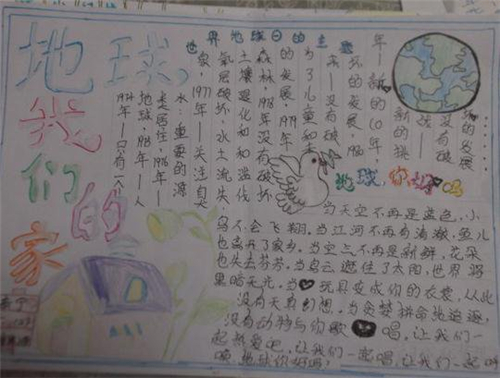 地球,
我
们
的
家
世界地球日的主题
1974年—只有一个
地球,1975年—人
类居住,1976年—
水:重要的源
泉,1977年—关注臭
氧层破坏、水土流失
土壤退化和和滥伐
森林,1978年没有破坏
的发展,1979年
为了儿童和未
来—没有破
坏的发展,1980
年—新的10年
新的挑
战—
没有破
坏的发展
地球,你好吗
当天空不再是蓝色,小
鸟不会飞翔,当江河不再有清澈,鱼儿
也离开了家乡,当空气不再是新鲜,花朵
也失去芬芳,当乌云遮住了太阳,世界漆
黑暗无光,当玩具变成你的衣裳,从此
没有天真幻想,当贪婪拼命地追逐,
没有动物与你歌唱,让我们一
起热爱吧,让我们一起唱,让我们一起呼
唤,地球你好吗!